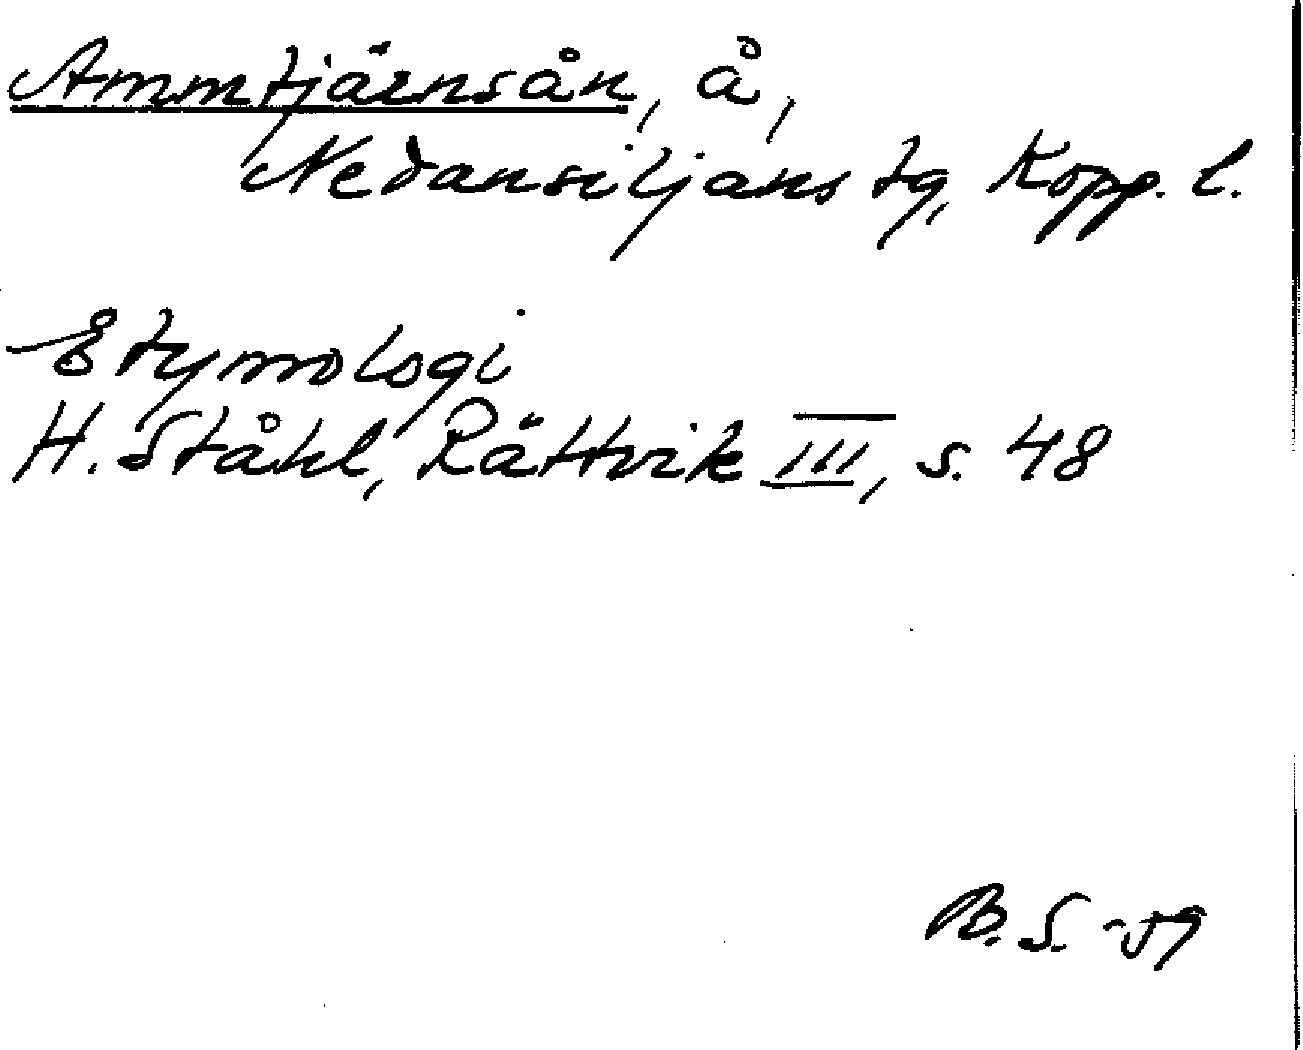 Ammtjärnsån, å,
Nedansiljans tg, Kopp. l.
Etymologi
H. Ståhl, Rättvik III, s. 48
B. S. -59